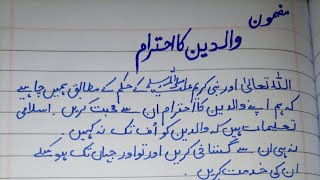 مضمون
والدین کا احترام
اللہ تعالیٰ اور نبی کریم صلی اللہ علیہ وسلم کے حکم کے مطابق ہمیں چاہیے
کہ ہم اپنے والدین کا احترام ان سے محبت کریں۔ اسلامی
تعلیمات ہیں کہ والدین کو اُف تک نہ کہیں۔
نہ ہی ان سے گستاخی کریں اور تو اور جہاں تک ہو سکے
ان کی خدمت کریں۔